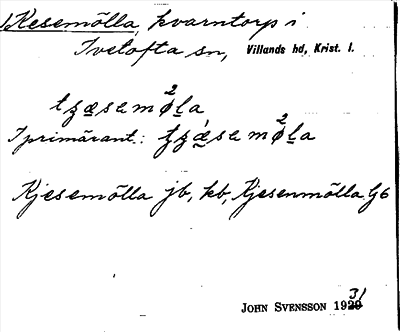 1. Kesemölla, kvarntorp i
Ivetofta sn, Villands hd, Krist. l.
tʒæsemø²la
I primärant.: tʒæ̀semø²la
Kjesemölla jb, kb, Kjesenmölla Gb
JOHN SVENSSON 1931